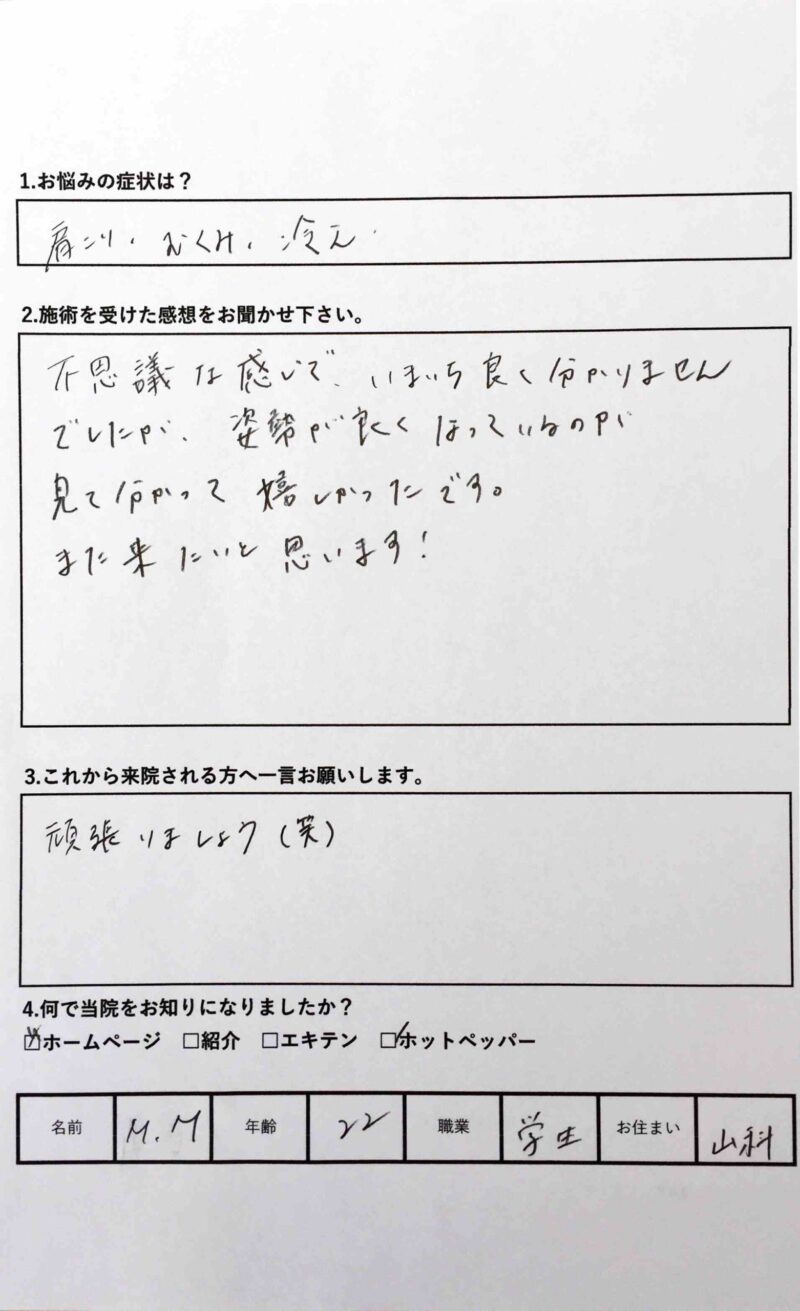 1.お悩みの症状は？
肩こり、むくみ、冷え
2.施術を受けた感想をお聞かせ下さい。
不思議な感じで、いまいち良く分かりません
でしたが、姿勢が良くなっているのが
見て分かって嬉しかったです。
また来たいと思います！
3.これから来院される方へ一言お願いします。
頑張りましょう(笑)
4.何で当院をお知りになりましたか？
☑ホームページ □紹介 □エキテン ☑ホットペッパー
名前 M.M 年齢 22 職業 学生 お住まい 山科